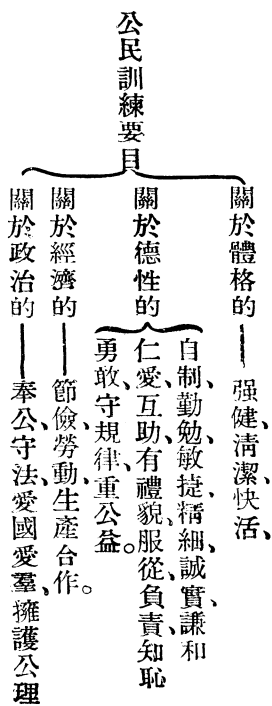 公民訓練要目
關於體格的
强健、淸潔、快活、
關於德性的
自制、勤勉、敏捷、精細、誠實、謙和
仁愛、互助、有禮貌、服從、負責、知恥
勇敢、守規律、重公益。
關於經濟的
節儉、勞動、生產、合作。
關於政治的
奉公、守法、愛國愛羣、擁護公理